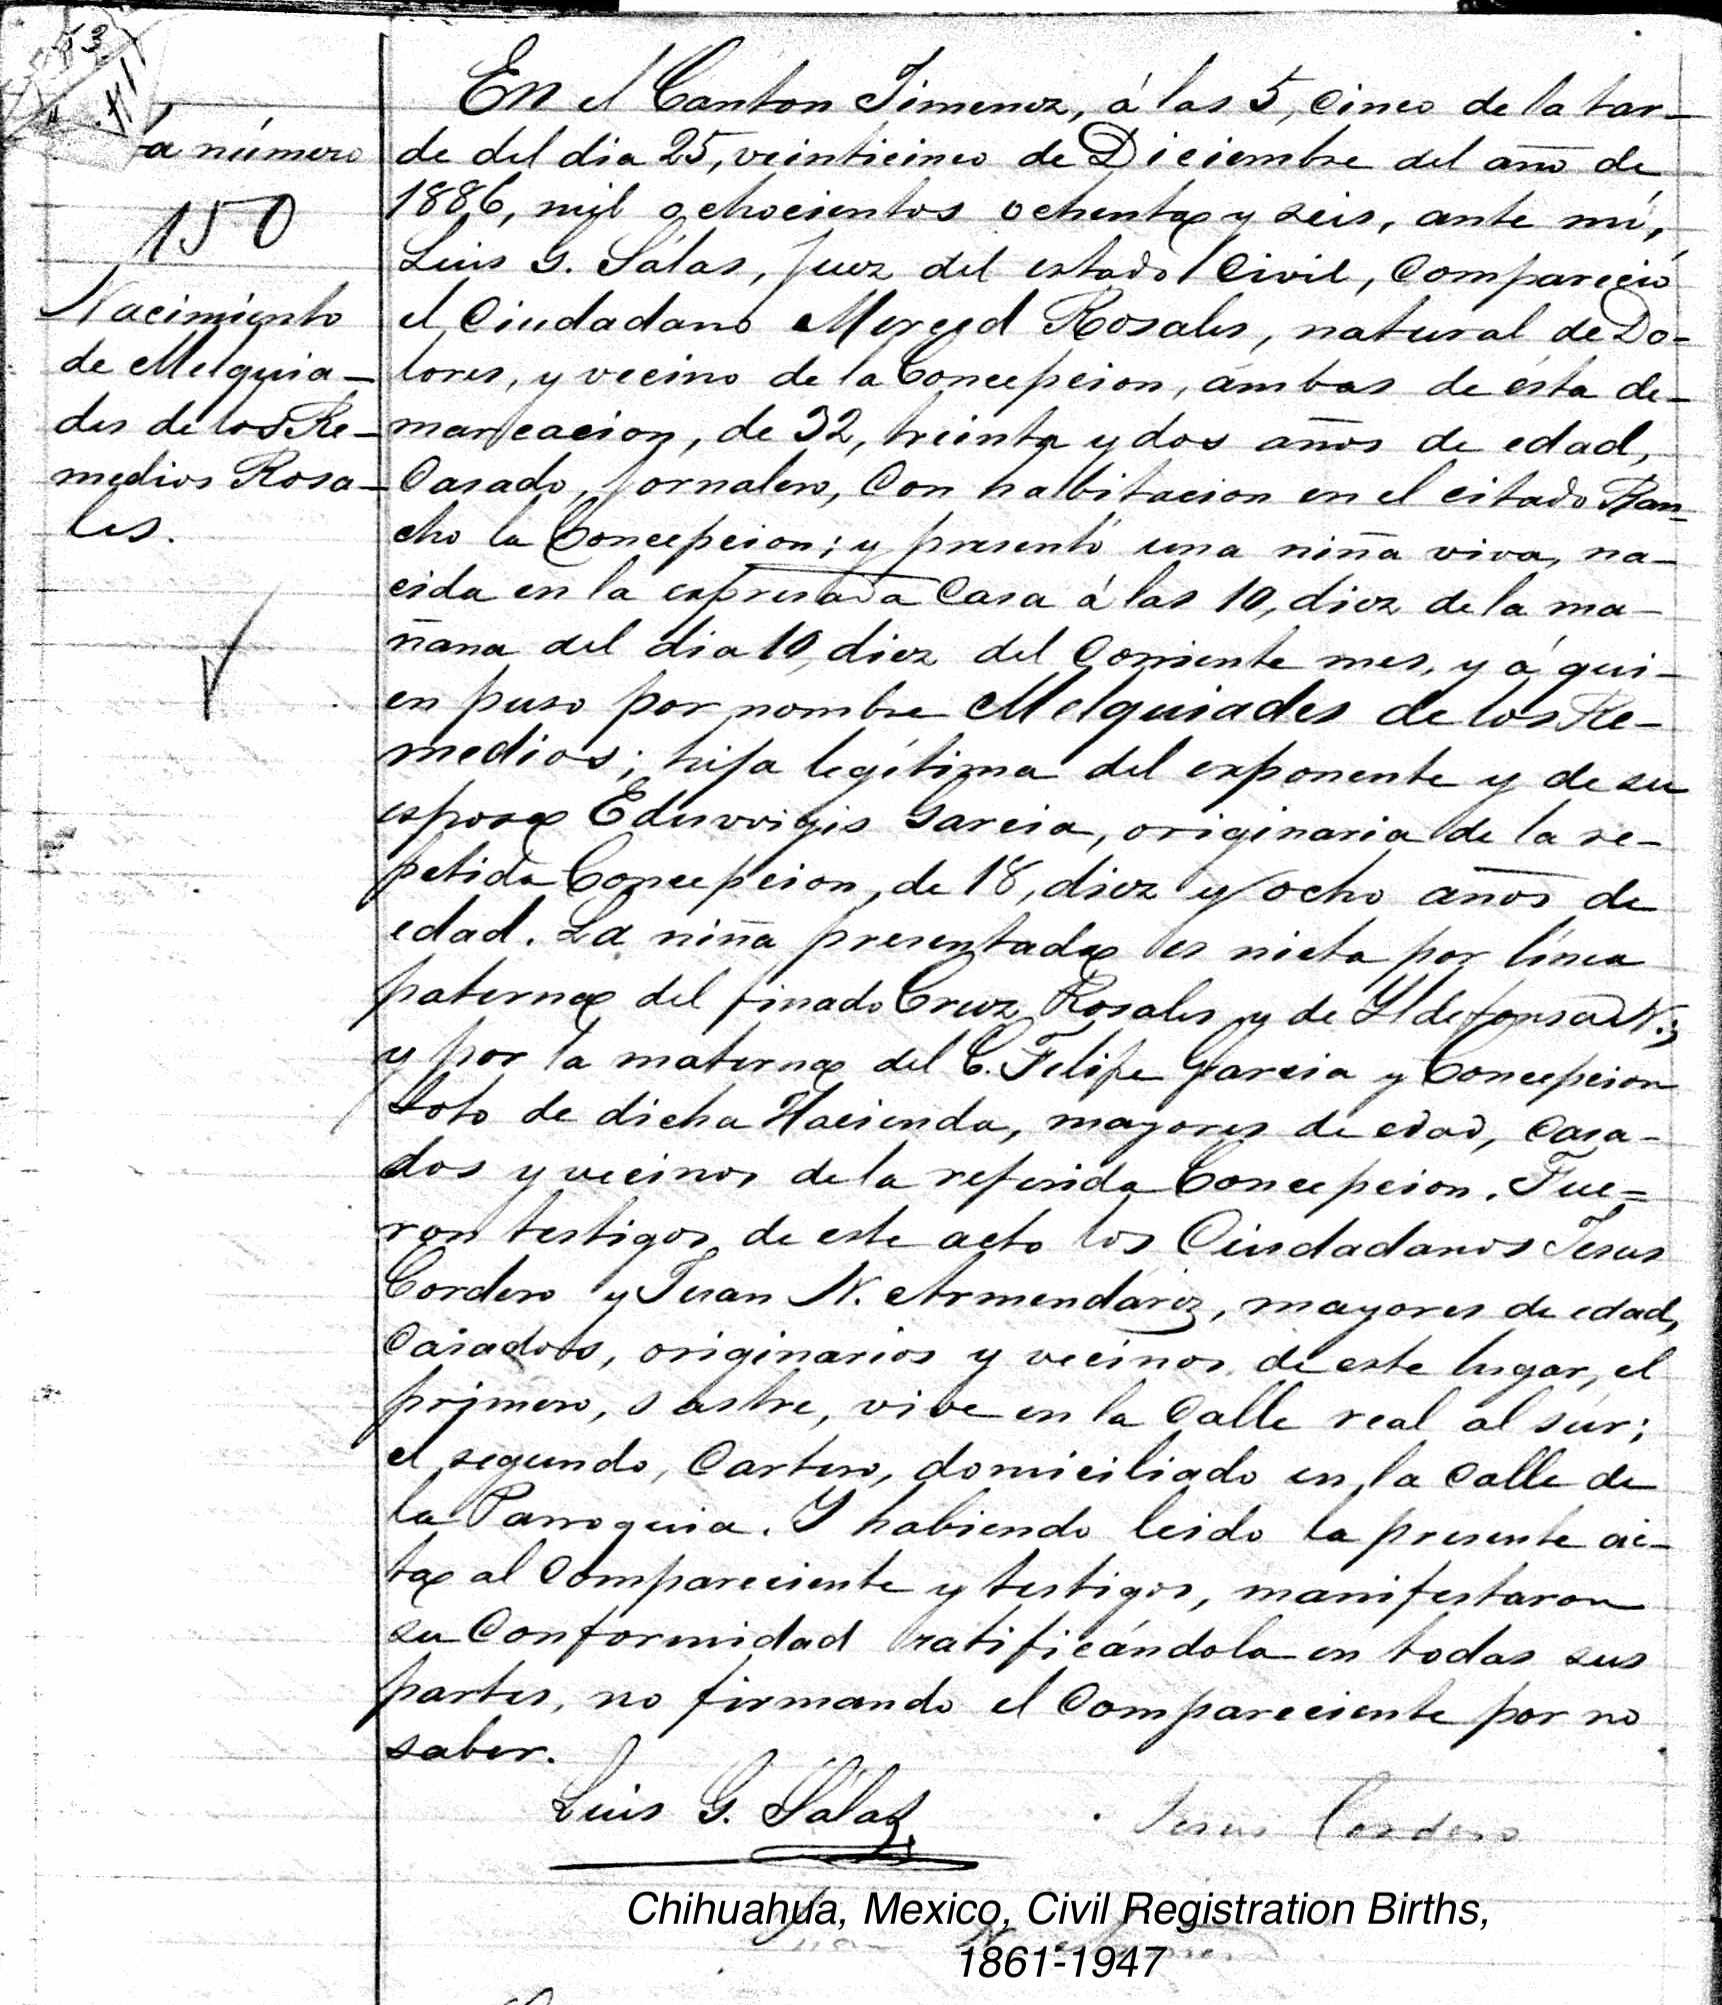 53
á número
150
Nacimiento
de Melquia-
des de los Re-
medios Rosa-
les.
En el Canton Jimenez, á las 5, cinco de la tar-
de del dia 25, veinticinco de Diciembre del año de
1886, mil ochocientos ochenta y seis, ante mí,
Luis G. Sálas, Juez del estado Civil, compareció
el Ciudadano Merced Rosales, natural de Do-
lores, y vecino de la Concepcion, ámbas de ésta de-
marcacion, de 32, treinta y dos años de edad,
Casado, Jornalero, con habitacion en el citado Ran-
cho la Concepcion; y presentó una niña viva, na-
cida en la expresada Casa á las 10, diez de la ma-
ñana del dia 10, diez del corriente mes, y á qui-
en puso por nombre Melquiades de los Re-
medios; hija legítima del exponente y de su
esposa Eduvvigis Garcia, originaria de la re-
petida Concepcion, de 18, diez y ocho años de
edad. La niña presentada es nieta por línea
paterna del finado Cruz Rosales y de Yldefonsa N.;
y por la materna del C. Felipe Garcia y Concepcion
Soto de dicha Hacienda, mayores de edad, casa-
dos y vecinos de la referida Concepcion. Fue-
ron testigos de este acto los Ciudadanos Jesus
Cordero y Juan N. Armendariz, mayores de edad,
Casados, originarios y vecinos de este lugar, el
primero, sastre, vive en la Calle real al sur;
el segundo, Cartero, domiciliado en la Calle de
la Parroquia. Y habiendo leido la presente ac-
ta al Compareciente y testigos, manifestaron
su Conformidad ratificándola en todas sus
partes, no firmando el Compareciente por no
saber.
Luis G. Sálas, Jesus Cordero
Chihuahua, Mexico, Civil Registration Births,
1861-1947